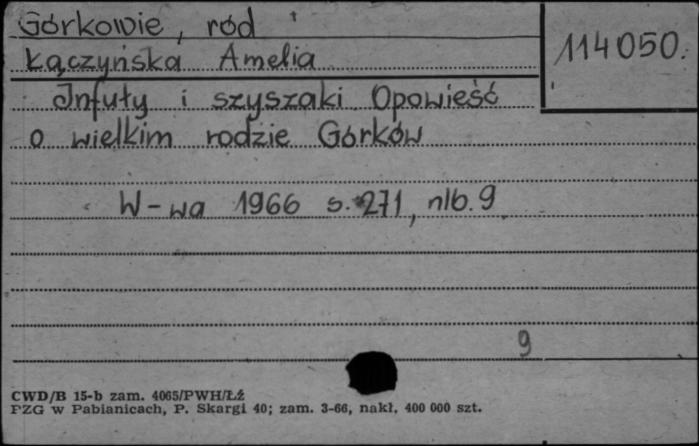 Górkowie, ród
114050.
Łączyńska Amelia
Infuły i szyszaki Opowieść
o wielkim rodzie Górków
W-wa 1966 s. 271, nlb. 9
9
CWD/B 15-b zam. 4065/PWH/Łź
PZG w Pabianicach, P. Skargi 40; zam. 3-66, nakł. 400 000 szt.